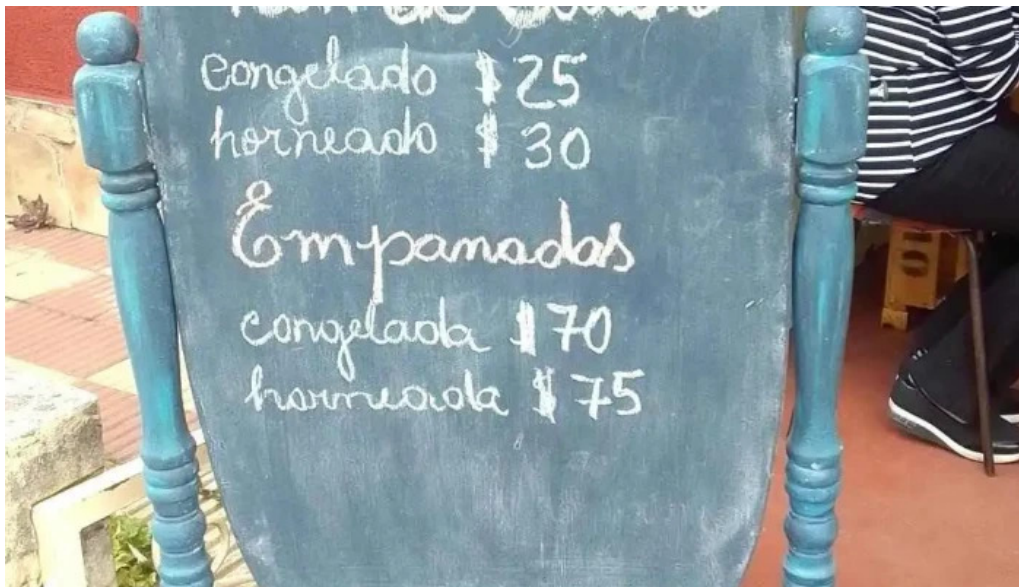 de
congelado $ 25
horneado $ 30
Empanadas
congelada $ 70
horneada $ 75